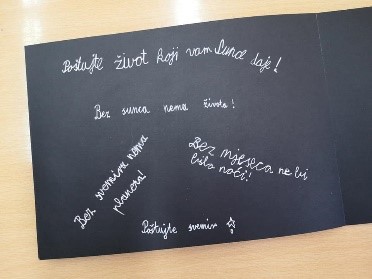 Poštujte život koji vam Sunce daje!
Bez sunca nema života!
Bez svemira nema
planeta!
Bez mjeseca ne bi
bilo noći!
Poštujte svemir